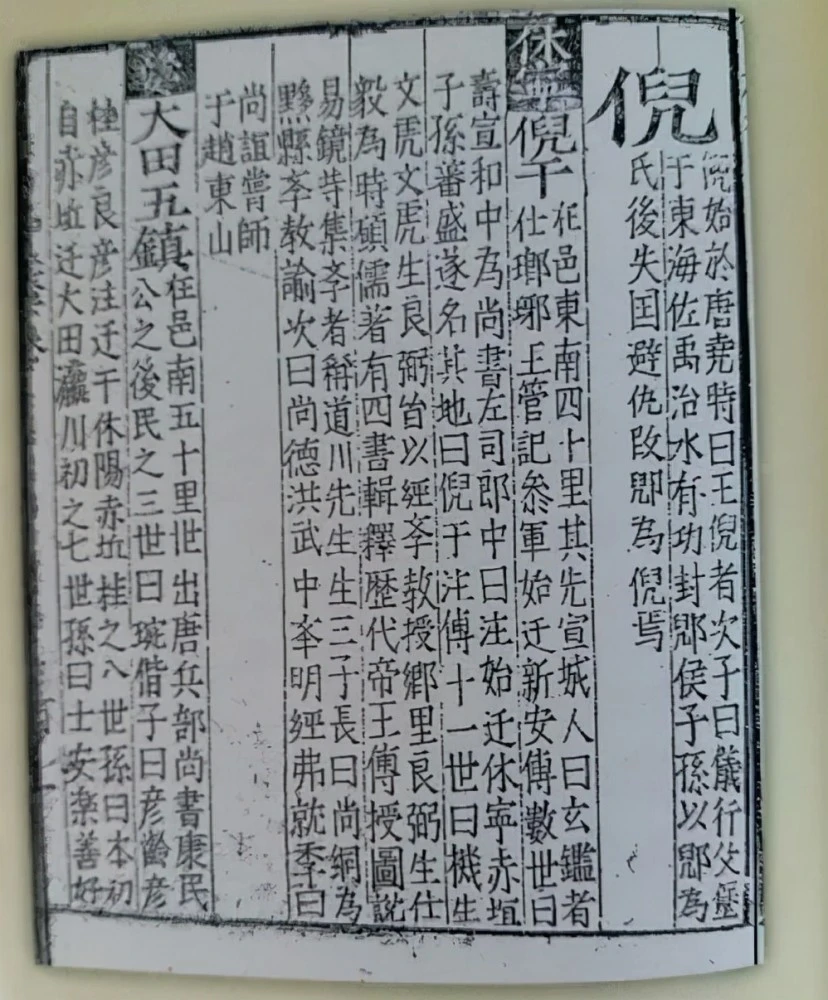 倪
倪始於唐堯時曰王倪者次子曰儀行父
于東海佐禹治水有功封郳侯子孫以郳為
氏後失国避仇改郳為倪焉
休寧
倪干
在邑東南四十里其先宣城人曰玄鑑者
仕瑯琊王管記叅軍始迁新安傳數世曰
壽宣和中為尚書左司郎中曰注始迁休寧赤垣
子孫蕃盛遂名其地曰倪于注傳十一世曰機生
文虎文虎生良弼皆以經斈教授鄉里良弼生仕
毅為時碩儒著有四書輯釋歷代帝王傳授圖説
易鏡等集斈者稱道川先生生三子長曰尚絅為
黟縣斈教諭次曰尚德洪武中峯明經弗就季曰
尚誼嘗師
于趙東山
大田五鎮
在邑南五十里世出唐兵部尚書康民
公之後民之三世曰琬偕子曰彦齡彦
桂彦良彦注迁干休陽赤坵桂之八世孫曰本初
自赤坵迁大田瀛川初之七世孫曰士安楽善好